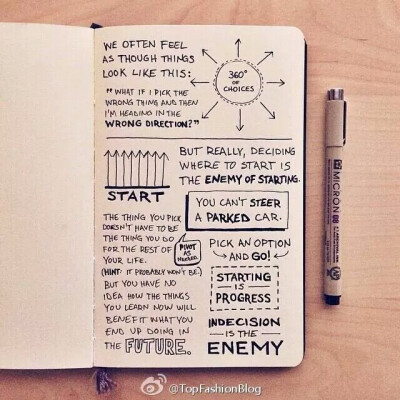 WE OFTEN FEEL
AS THOUGH THINGS
LOOK LIKE THIS:
"WHAT IF I PICK THE
WRONG THING AND THEN
I'M HEADING IN THE
WRONG DIRECTION?"
360°
OF
CHOICES
START
BUT REALLY, DECIDING
WHERE TO START IS
THE ENEMY OF STARTING.
YOU CAN'T STEER
A PARKED CAR.
THE THING YOU PICK
DOESN'T HAVE TO BE
THE THING YOU DO
FOR THE REST OF
YOUR LIFE.
PIVOT
AS
NEEDED.
(HINT: IT PROBABLY WON'T BE.)
BUT YOU HAVE NO
IDEA HOW THE THINGS
YOU LEARN NOW WILL
BENEFIT WHAT YOU
END UP DOING IN
THE FUTURE.
PICK AN OPTION
AND GO!
STARTING
IS
PROGRESS
INDECISION
IS THE
ENEMY
MICRON
@TopFashionBlog